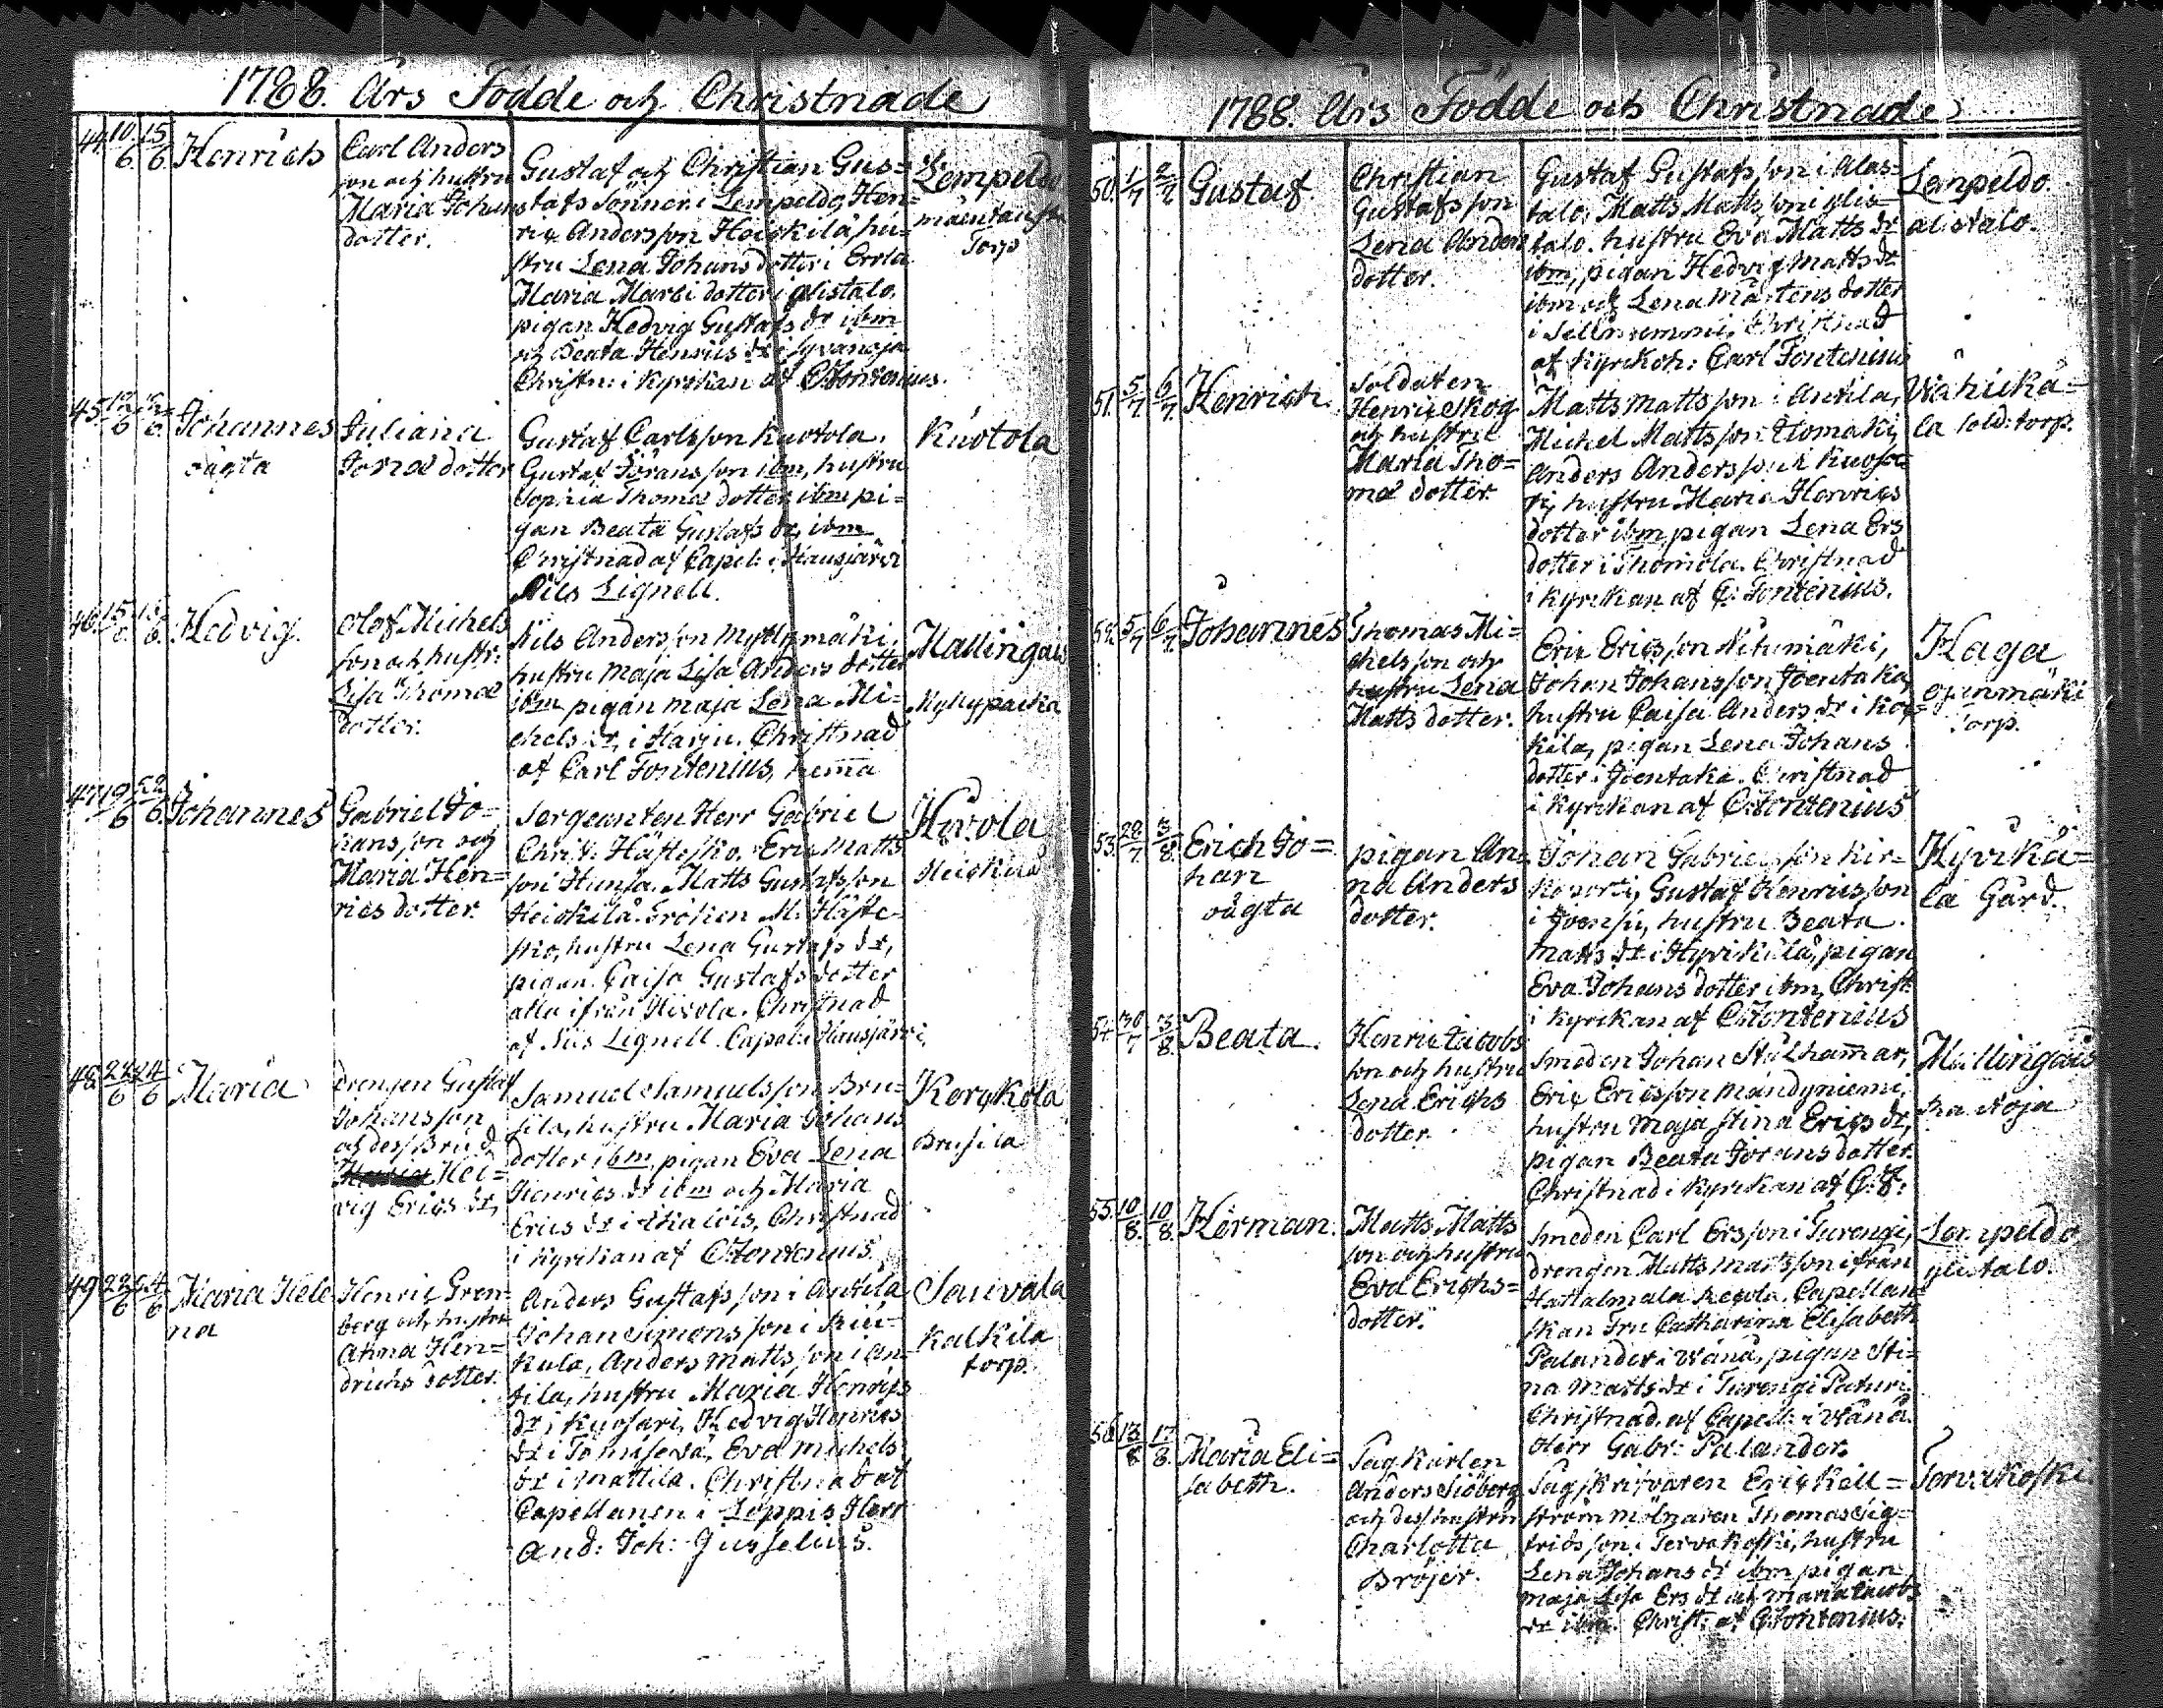 1788. Års Födde och Christnade
44. 10/6. 15/6. Henrich
Carl Anders
son och hustru
Maria Johans
dotter.
Gustaf och Christian Gus=
tafs söner i Lempeldo, Hen=
ric Andersson Heickilä, hu=
stru Lena Johans dotter i Errla
Maria Marti dotter i
pigan Hedvig Gustafs dr ibm
och Beata Henrics dr i Syvänoja
Christn: i Kyrkan af C. Fontenius.
Lempeldo
Torp
45. 6. Johannes
oägta
Juliana
Jona dotter
Gustaf Carlsson Kuotola,
Gustaf Göransson ibm, hustru
Sophia Thomæ dotter ibm pi=
gan Beata Gustafs dr, ibm
Christnad af Capel: i Hausjärvi
Nils Lignell.
Kuotola
46. 15/6. 15/6. Hedvig.
Olof Michels
son och hustr:
Lisa Thomæ
dotter.
Nils Andersson Myllymäki,
hustru Maja Lisa Anders dotter
ibm pigan Maja Lena Mi=
chels dr, i Harju. Christnad
af Carl Fontenius, hemma
Mallingais
47. 19/6 22/6. Johannes
Gabriel Jo=
hansson och
Maria Hen=
rics dotter.
Sergeanten Herr Gabriel
Christ: Hästesko. Eric Matts
son Hunsa. Matts Gustafsson
Heickilä. Fröken M. Häste=
sko, hustru Lena Gustafs dr,
pigan Caisa Gustafs dotter
alla ifrån Hivola. Christnad
af Nils Lignell. Capel: i Hausjärvi.
Hivola
Heickilä
48. 22/6 24/6 Maria
Drengen Gustaf
Johansson
och dess Brud
Hed=
vig Erics dr,
Samuel Samuelsson Bru=
sila, hustru Maria Johans
dotter ibm, pigan Eva Lena
Henrics dr ibm och Maria
Erics dr i, Christnad
i Kyrkan af C. Fontenius.
Kerckola
Brusila
49 22/6 24/6 Maria Hele
na
Henric Gren=
berg och hustru
Anna Hen=
drichs dotter.
Anders Gustafsson i Anttila
Johan Simonsson i
kula, Anders Mattsson i An=
tila, hustru Maria Henrics
dr i Kuosari, Hedvig Henrics
dr i, Eva Michels
dr i Mattila. Christnad af
Capellanen i Loppis Herr
And: Joh: Gusselius.
Sauvala
Kalkila
torp.
1788. Års Födde och Christnade
50. 1/7 2/7 Gustaf
Christian
Gustafsson
Lena Anders
dotter.
Gustaf Gustafsson i Alas=
talo, Matts Mattsson i
talo. hustru Eva Matts dr
ibm, pigan Hedvig Matts dr
ibm och Lena Mårtens dotter
i. Christnad
af Kyrkoh: Carl Fontenius
Lempeldo.
alistalo.
51. 5/7 6/7. Henrich.
Soldaten
Henric Skog
och hustru
Maria Tho=
mæ dotter.
Matts Mattsson i Anttila,
Michel Mattsson,
Anders Andersson i Kuosa=
ri, hustru Maria Henrics
dotter ibm, pigan Lena Ers
dotter i Thomola. Christnad
i Kyrckan af C. Fontenius.
la sold: torp.
52. 5/7 6/7. Johannes
Thomas Mi=
chelsson och
hustru Lena
Matts dotter.
Eric Ericsson,
Johan Johansson Joentaka
hustru Caisa Anders dr i
kila, pigan Lena Johans
dotter i Joentaka. Christnad
i Kyrckan af C. Fontenius
Haga
Torp.
53. 28/7 3/8. Erich Jo=
han
oägta
pigan An=
na Anders
dotter.
Johan Gabrielsson,
Gustaf Henricsson
i Joensu, hustru Beata
Matts dr i Hyvikälä, pigan
Eva Johans dotter ibm, Christ:
i Kyrckan af C. Fontenius
Hyvikä=
la Gård.
54. 30/7 3/8. Beata.
Henric Jacobs
son och hustru
Lena Erichs
dotter.
Smeden Johan Stålhammar,
Eric Ericsson Mändyniemi,
hustru Maja Stina Erics dr,
pigan Beata Jörans dotter.
Christnad i Kyrckan af C. F:
Mallingais
55. 10/8. 10/8. Herman.
Matts Matts
son och hustru
Eva Erichs=
dotter.
Smeden Carl Ersson i Turengi,
drengen Matts Mattsson ifrån
Hattelmala. Capellan=
skan Fru Catharina Elisabeth
Palander i Wånå, pigan Sti=
na Matts dr i Turengi
Christnad af Capell: i Wånå
Herr Gabr: Palander.
Lempeldo
56. 13/8 17/8. Maria Eli=
sabeth.
Anders Siöberg
och dess hustru
Charlotta
Bröjer.
Sagskrifvaren Eric Kell=
ström mölnaren Thomas Sig=
fridsson i Tervakoski, hustru
Lena Johans dr ibm pigan
Maja Lisa Ers dr och Maria Jacobs
dr ibm. Christ: af C. Fontenius.
Tervakoski.